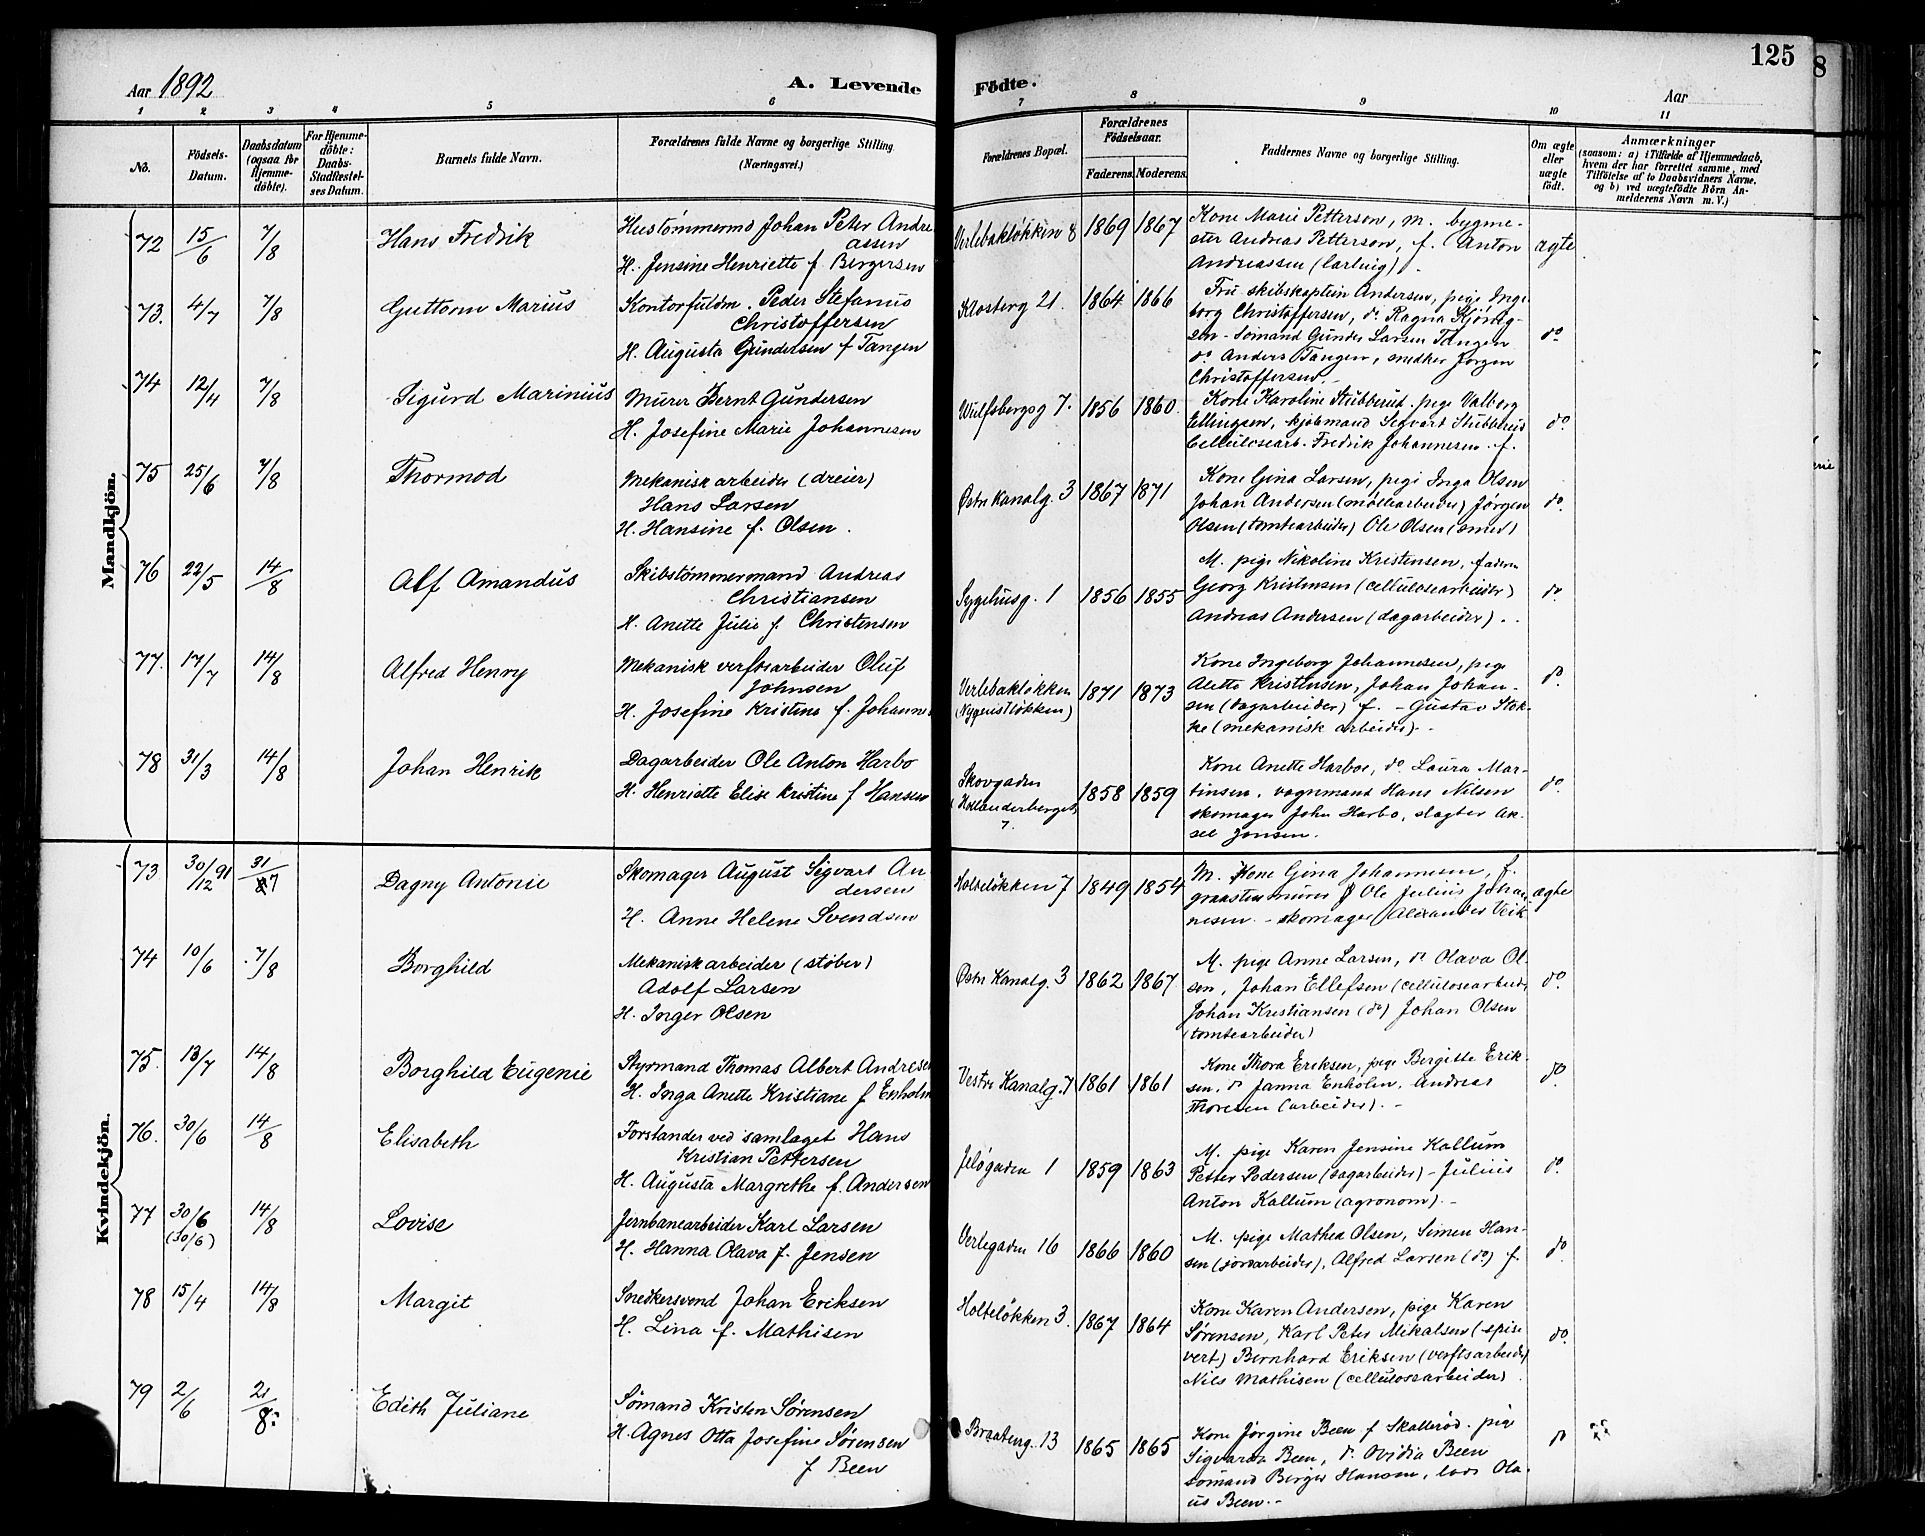 125
Aar 1892
A. Levende Födte.
Aar
1 2 3 4 5 6 7 8 9 10 11
No.
Födsels-Datum.
Daabsdatum (ogsaa for Hjemme-döbte).
For Hjemme-döbte: Daabs-Stadfæstel-ses Datum.
Barnets fulde Navn.
Forældrenes fulde Navne og borgerlige Stilling. (Næringsvei.)
Forældrenes Bopæl.
Forældrenes Födselsaar.
Faderens. Moderens.
Faddernes Navne og borgerlige Stilling.
Om ægte eller uægte födt.
Anmærkninger
(saasom: a) i Tilfælde af Hjemmedaab, hvem der har forrettet samme, med Tilföielse af to Daabsvidners Navne, og b) ved uægtefödte Börn An-melderens Navn m. V.)
Mandkjön.
72 15/6 7/8 Hans Fredrik
Hustömmermd Johan Peter Andre
assen
H. Jensine Henriette f. Bergersen
Verlebakløkken 8 1869 1867
Kone Marie Petterson, m. bygme-
ster Andreas Petterson, f. Anton
Andreassen (lærling).
ægte
73. 4/7 7/8 Guttorm Marius
Kontorfuldm. Peder Stefanus
Christoffersen
H. Augusta Gundersen f Tangen
Klosterg 21. 1864 1866
Fru skibskaptein Andersen, pige Inge
borg Christoffersen, do Ragna
sen - sömand Gunder Larsen Tangen
do Anders Tangen, snedker Jørgen
Christoffersen.
do
74 12/4 7/8 Sigurd Marinius
Murer Bernt Gundersen
H. Josefine Marie Johannesen
Wulfsbergsg 7. 1856 1860
Kone Karoline Stubberud. pige Valborg
Ellingsen, kjöbmand Segvart Stubberud
Cellulosearb. Fredrik Johannesen f.
do.
75 25/6 7/8 Thormod
Mekanisk arbeider (dreier)
Hans Larsen
H. Hansine f. Olsen.
Østre Kanalg. 3 1867 1871
Kone Gina Larsen, pige Inga Olsen
Johan Andersen (møllearbeider) Jørgen
Olsen (tomtearbeider) Ole Olsen (smed)
do.
76 22/5 14/8 Alf Amandus
Skibstömmermand Andreas
Christiansen
H. Anette Julie f. Christensen
Sygehusg. 1 1856 1855
M. pige Nikoline Kristensen, faderen
Georg Kristensen (cellulosearbeider)
Andreas Andersen (dagarbeider)..
do.
77. 17/7 14/8 Alfred Henry
Mekanisk verftsarbeider Oluf
Johnsen
H. Josefine Kristine f. Johannes
Verlebakløkken 1871 1873
Kone Ingeborg Johannesen, pige
Alette Kristensen, Johan Johan-
sen (dagarbeider) f. - Gustav Stok-
ke (mekanisk arbeider).-
do.
78 31/3 14/8 Johan Henrik
Dagarbeider Ole Anton Harbo
H. Henriette Elise Kristine f Hansen
Skovgaden
(Hollenderberget)
7. 1858 1859
Kone Anette Harboe, do. Laura Mar-
tinsen, vognmand Hans Nilsen
skomager John Harbo, slagter Ak-
sel Jonsen.
do.
Kvindekjön.
73 30/12 91 31/7 Dagny Antonie
Skomager August Sigvart An
dersen
H. Anne Helene Svendsen
Holteløkken 7 1849 1854
M. Kone Gina Johannesen, f.
graastensmurer Ole Julius Johan
nesen - skomager Alexander
ægte
74 10/6 7/8 Borghild
Mekanisk arbeider (støber)
Adolf Larsen
H. Inger Olsen
Østre Kanalg. 3 1862 1867
M. pige Anne Larsen, do Olava Ol-
sen, Johan Ellefsen (cellulosearbeid
Johan Kristiansen (do) Johan Olsen
(tomtearbeider)
do.
75. 13/7 14/8 Borghild Eugenie
Styrmand Thomas Albert Andresen
H. Inga Anette Kristiane f Enholm
Vestre Kanalg. 7 1861 1861
Kone Thora Eriksen, pige Bergitte Erik-
sen, do Janna Enholm, Andreas
Thoresen (arbeider).-
do.
76. 30/6 14/8 Elisabeth
Forstander ved samlaget Hans
Kristian Pettersen
H. Augusta Margrethe f. Andersen
Jeløgaden 1 1859 1863
M. pige Karen Jensine Kallum
Petter Pedersen (dagarbeider) - Julius
Anton Kallum (agronom).-
do.
77 30/6 (30/6) 14/8 Lovise
Jernbanearbeider Karl Larsen
H. Hanna Olava f. Jensen
Verlegaden 16 1866 1860
M. pige Mathea Olsen, Simen Han-
sen (jordarbeider), Alfred Larsen (do) f.
do.
78 15/4 14/8 Margit
Snedkersvend Johan Eriksen
H. Lina f. Mathisen
Holteløkken 3. 1867 1864
Kone Karen Andersen, pige Karen
Sørensen, Karl Peter Mikalsen (spise
vert) Bernhard Eriksen (verftsarbeider)
Nils Mathisen (cellulosearbeider)
do.
79 2/6 21/8 Edith Juliane
Sömand Kristen Sørensen
H. Agnes Otta Josefine Sørensen
f Been
Braateng. 13 1865 1865
Kone Jørgine Been f Skallerød. pige
Sigvarda Been, do. Ovidia Been
sømand Berger Hansen, lods Ola-
us Been.-
do